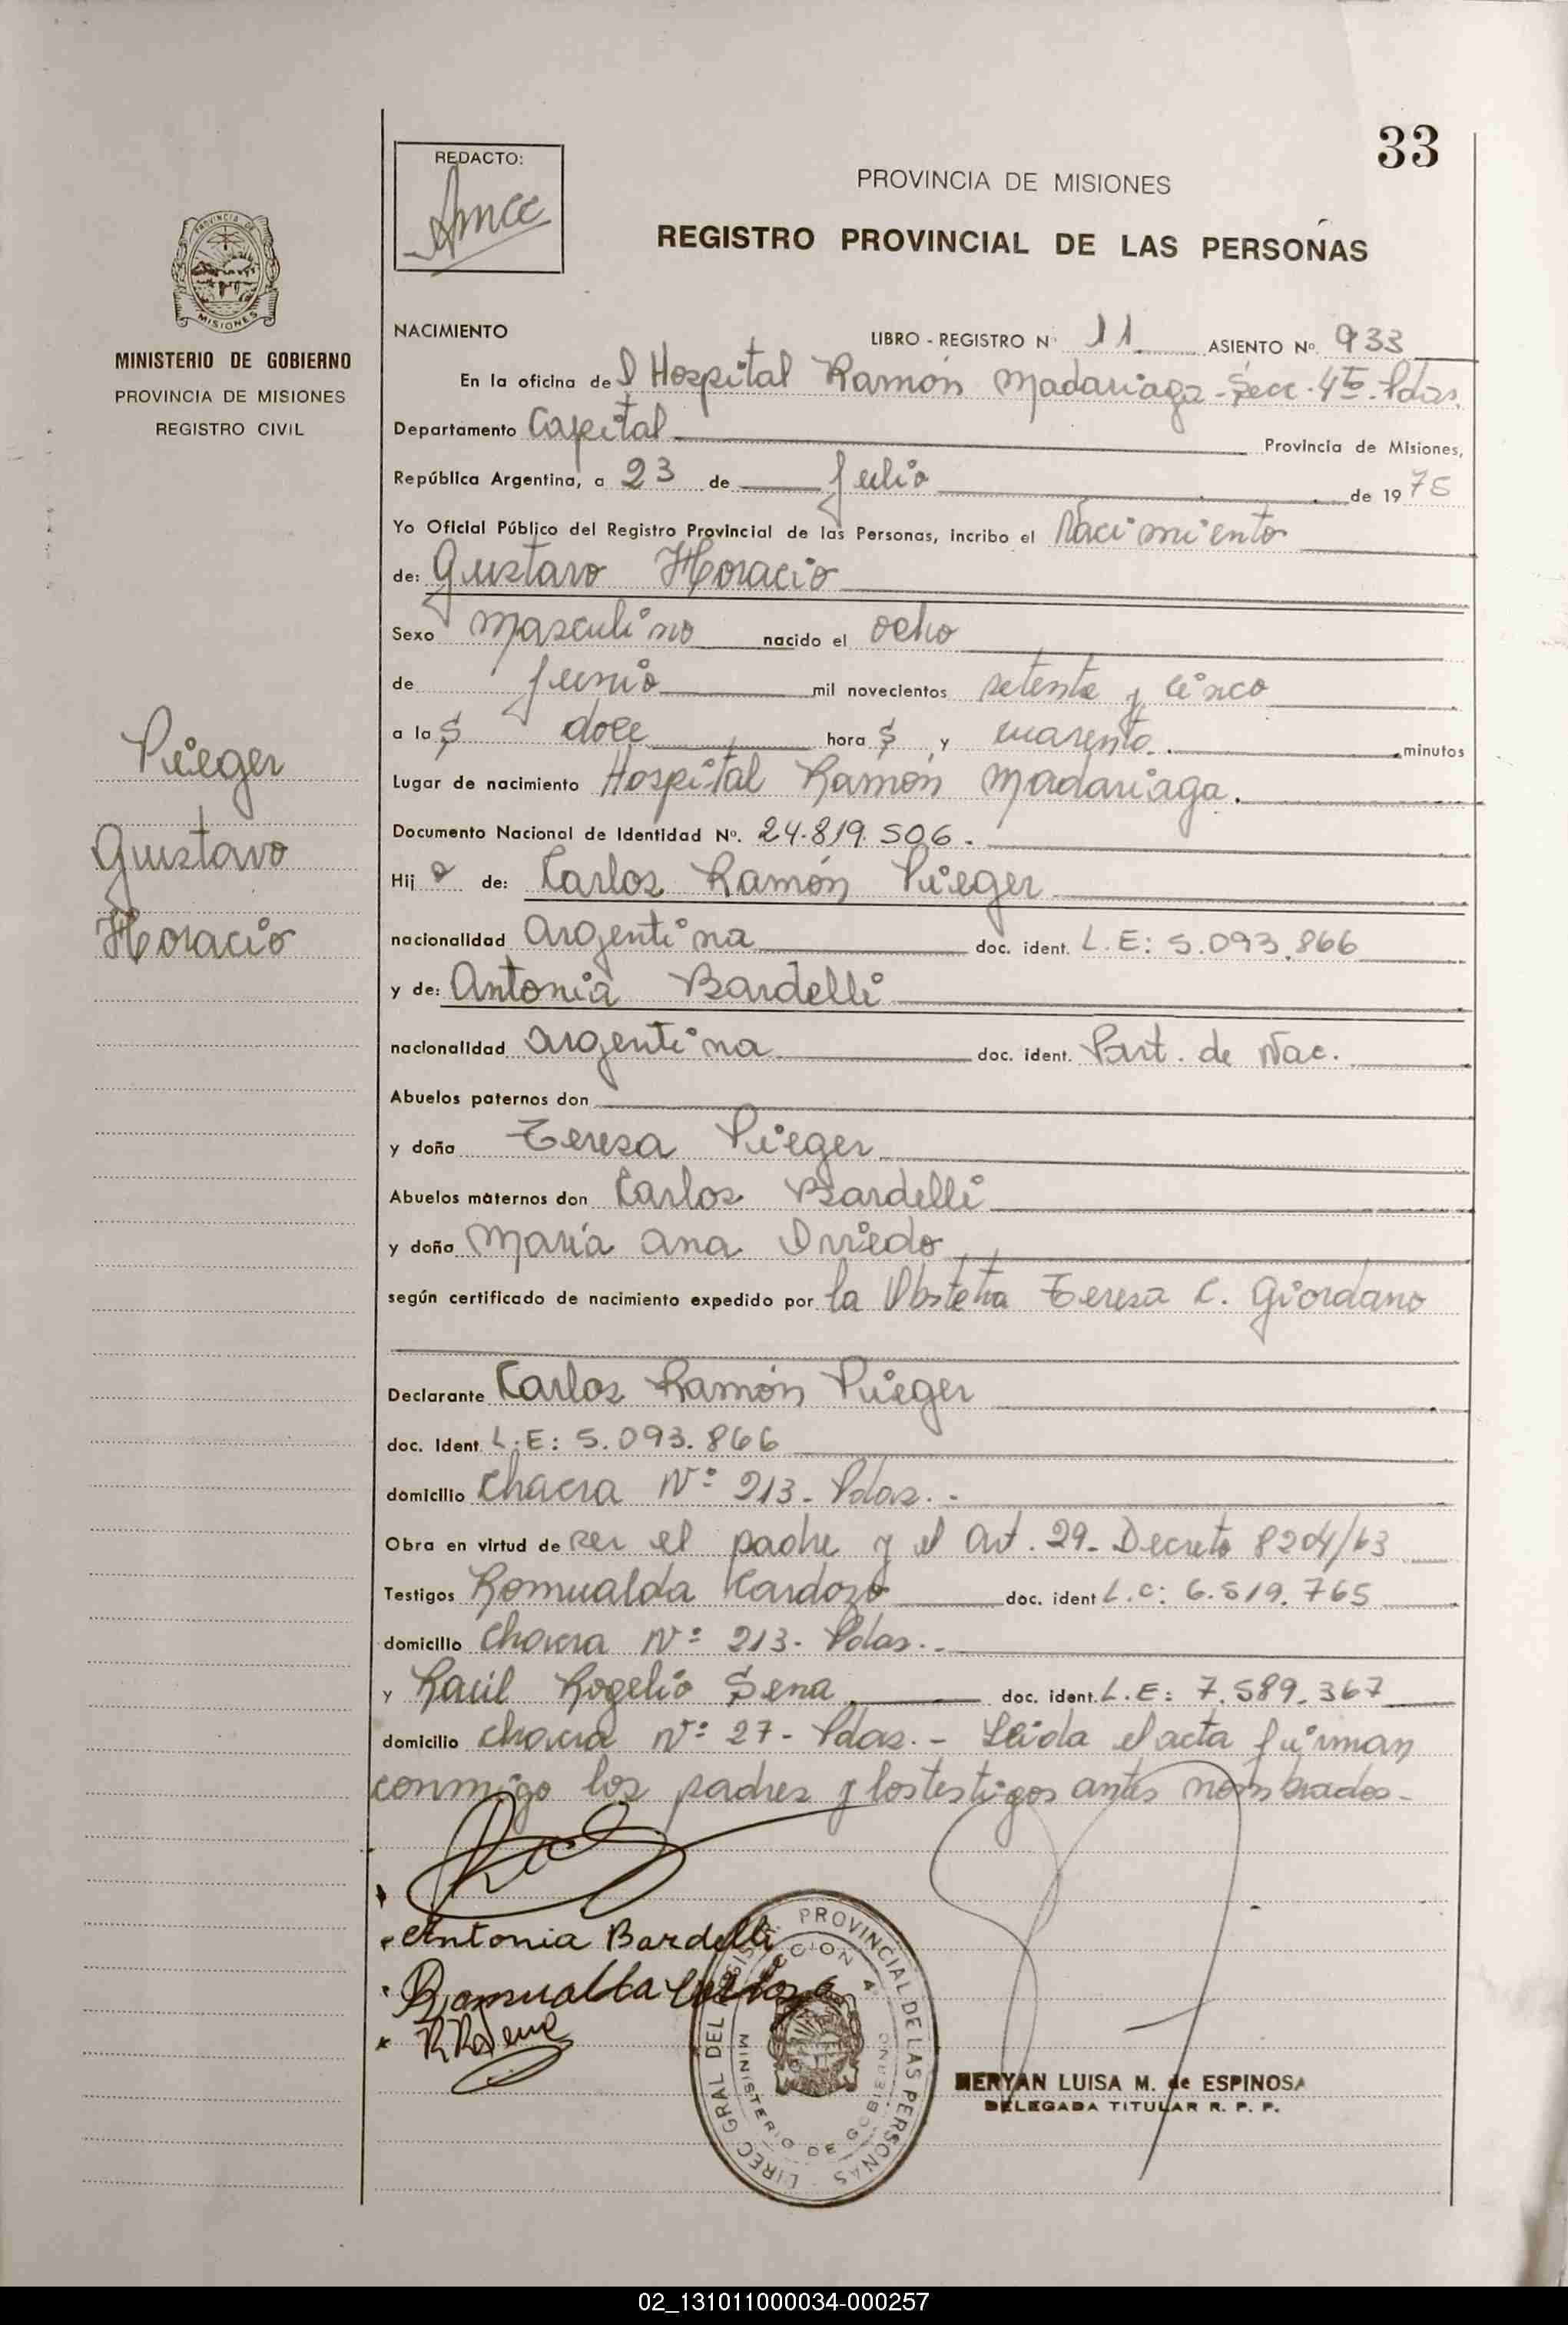 33
REDACTO:
PROVINCIA DE MISIONES
REGISTRO PROVINCIAL DE LAS PERSONAS
PROVINCIA DE
MISIONES
MINISTERIO DE GOBIERNO
PROVINCIA DE MISIONES
REGISTRO CIVIL
NACIMIENTO LIBRO - REGISTRO Nº 11 ASIENTO Nº. 933
En la oficina del Hospital Ramón Madariaga - Secc. 4ta. Pdas.
Departamento Capital Provincia de Misiones,
República Argentina, a 23 de Julio de 1975
Yo Oficial Público del Registro Provincial de las Personas, incribo el Nacimiento
de: Gustavo Horacio
Sexo Masculino nacido el ocho
de Junio mil novecientos setenta y cinco
a las doce horas y cuarenta minutos
Lugar de nacimiento Hospital Ramón Madariaga.
Documento Nacional de Identidad Nº. 24.819.506.
Hijo de: Carlos Ramón Rieger
nacionalidad Argentina doc. ident. L.E: 5.093.866
y de: Antonia Bardelli
nacionalidad Argentina doc. ident. Part. de Nac.
Abuelos paternos don
y doña Teresa Rieger
Abuelos maternos don Carlos Bardelli
y doña María Ana Oviedo
según certificado de nacimiento expedido por la Obstetra Teresa C. Giordano
Declarante Carlos Ramón Rieger
doc. Ident L.E: 5.093.866
domicilio Chacra Nº 213. Pdas. -
Obra en virtud de ser el padre y el Art. 29- Decreto 8204/63
Testigos Romualda Cardozo doc. ident L.C: 6.819.765
domicilio Chacra Nº 213- Pdas. -
y Raúl Rogelio Sena doc. ident. L.E: 7.589.367
domicilio Chacra Nº 27- Pdas. - Leída el acta firman
conmigo los padres y los testigos antes nombrados-
Rieger
Gustavo
Horacio
Antonia Bardelli
Romualda Cardozo
RRSena
DIREC GRAL DEL REGISTR. PROVINCIAL DE LAS PERSONAS
SECCION 4ª
MINISTERIO DE GOBIERNO
MERYAN LUISA M. de ESPINOSA
DELEGADA TITULAR R. P. P.
02_131011000034-000257